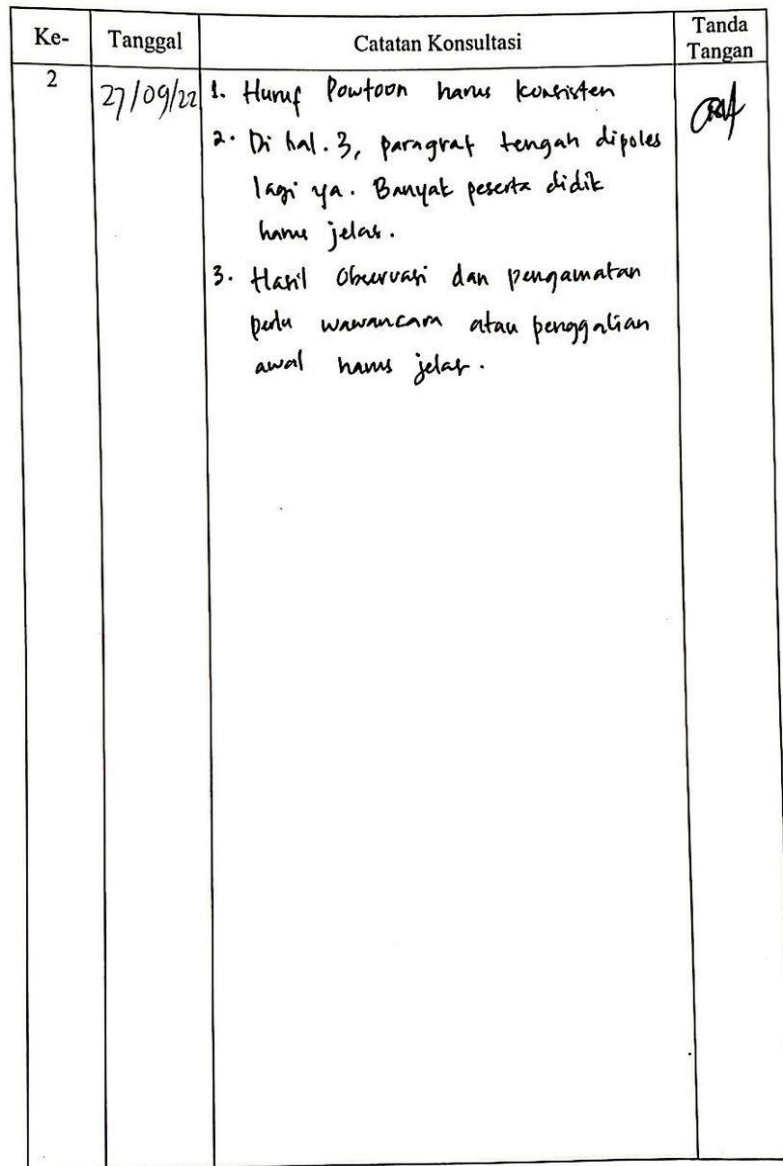 Ke- Tanggal Catatan Konsultasi Tanda
Tangan
2 27/09/22 1. Huruf Powtoon harus konsisten
2. Di hal. 3, paragraf tengah dipoles
lagi ya. Banyak peserta didik
harus jelas.
3. Hasil Observasi dan pengamatan
perlu wawancara atau penggalian
awal harus jelas.